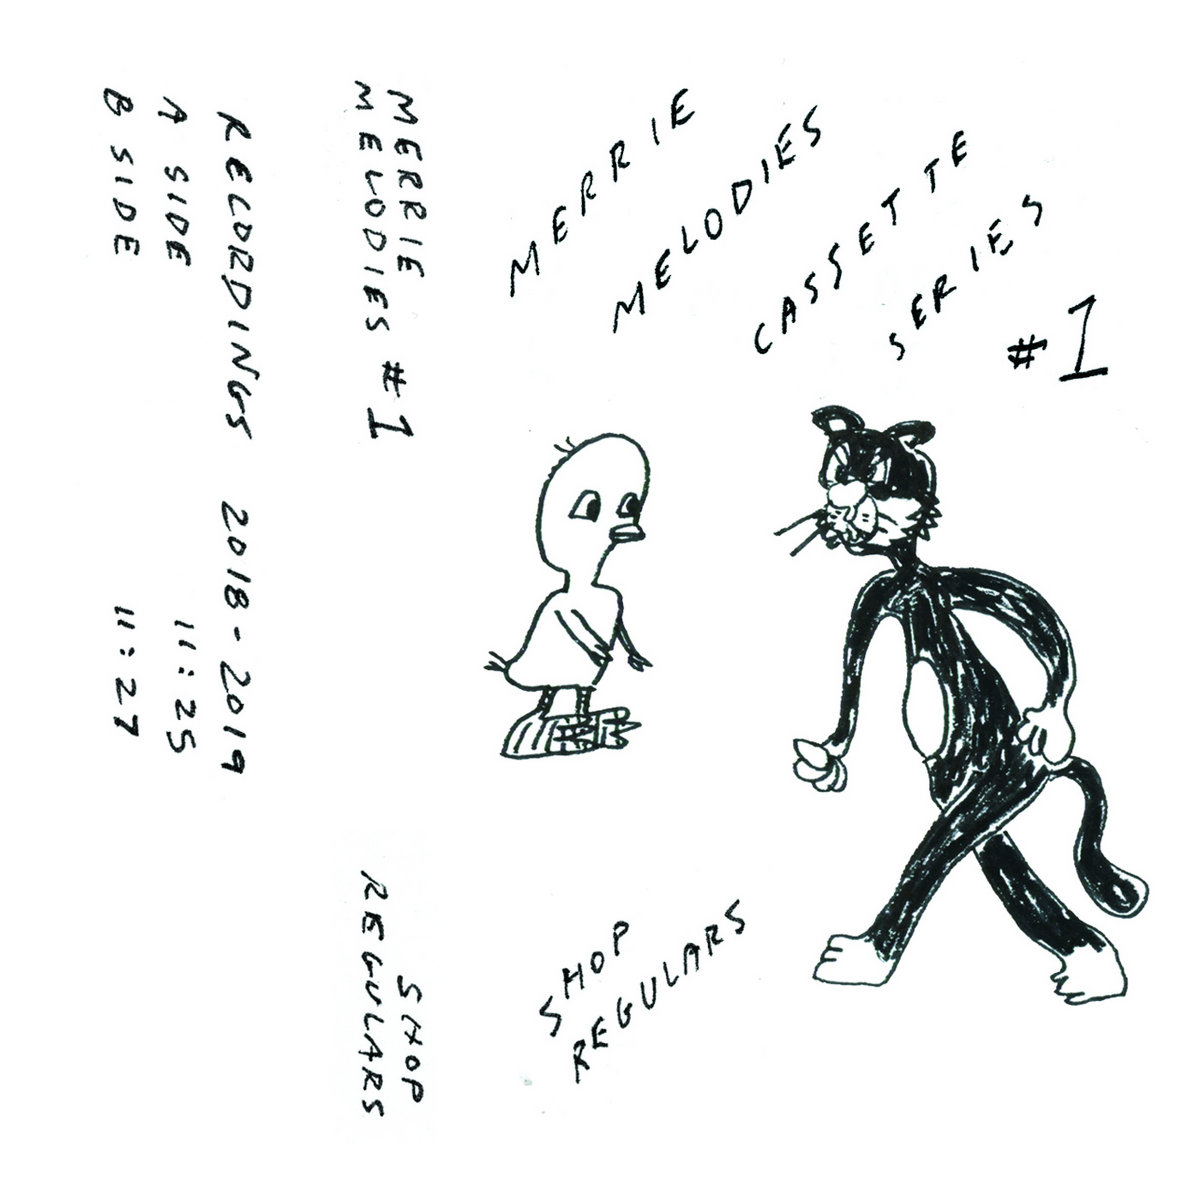 MERRIE
MELODIES
CASSETTE
SERIES
#1
SHOP
REGULARS
MERRIE
MELODIES #1
SHOP
REGULARS
RECORDINGS 2018-2019
A SIDE 11:25
B SIDE 11:27